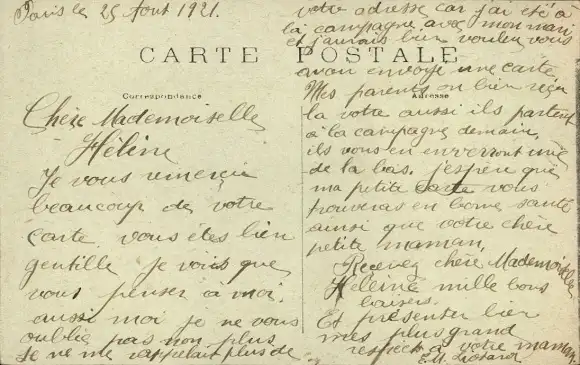 Paris le 25 Aout 1921.
CARTE POSTALE
Correspondance
Chère Mademoiselle
Hélène
Je vous remercie
beaucoup de votre
carte vous êtes bien
gentille je vois que
vous penser à moi
aussi moi je ne vous
oublie pas non plus
Je ne me rappelait plus de
votre adresse car j'ai été à
la campagne avec mon mari
et j'aurais bien voulu vous
avoir envoye une carte
Adresse
Mes parents on bien reçu
la votre aussi ils partent
à la campagne demain,
ils vous en enverront une
de la bas. j'espère que
ma petite carte vous
trouveras en bonne santé
ainsi que votre chère
petite maman,
Recevez chère Mademoiselle
Hélène mille bons
baisers.
Et présenter bien
mes plus grand
respects à votre maman,
E.M.